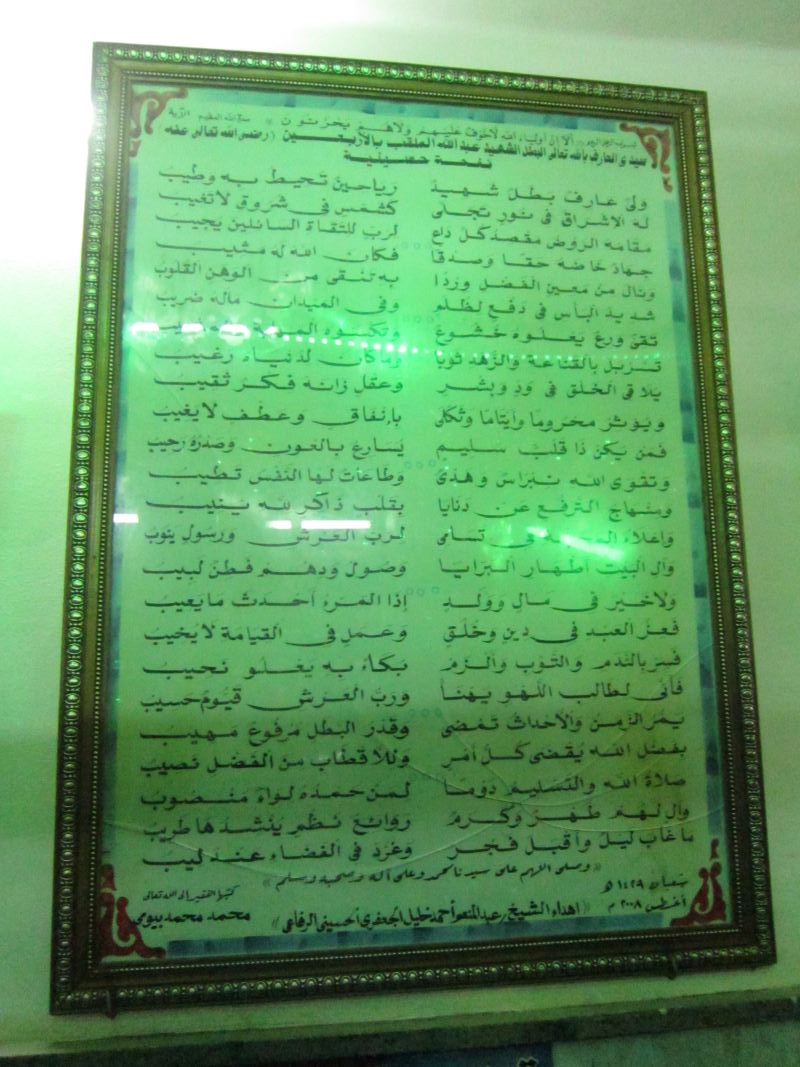 بسم الله الرحمن الرحيم ألا إن أولياء الله لا خوف عليهم ولا هم يحزنون صدق الله العظيم الآية
سيدى العارف بالله تعالى البطل الشهيد عبد الله الملقب بالأربعين (رضى الله تعالى عنه)
نفحة حسينية
ولى عارف بطل شهيد رياحين تحيط به وطيب
له الإشراق فى نور تجلى كشمس فى شروق لا تغيب
مقامه الروض مقصد كل داع لرب للتقاة السائلين يجيب
جهاد خاضه حقا وصدقا فكان الله له مثيب
ونال من معين الفضل وردا به تنقى من الوهن القلوب
شديد البأس فى دفع لظلم وفى الميدان ماله ضريب
تقى ورع يعلوه خشوع وتكسوه
تزبل بالقناعة والزهد ثوبا وما كان لدنياه رغيب
يلاقى الخلق فى ود وبشر وعقل زانه فكر ثقيب
ويؤثر محروما وأيتاما وثكلى بإنفاق وعطف لا يغيب
فمن يكن ذا قلب سليم يسارع بالعون وصدره رحيب
وتقوى الله نبراس وهدى وطاعات لها النفس تطيب
ومنهاج الترفع عن دنايا بقلب ذاكر لله ينيب
وإعلاء فى تسامى لرب العرش ورسول ينوب
وآل البيت أطهار البرايا وصول ودهم فطن لبيب
ولا خير فى مال وولد إذا المرء أحدث ما يعيب
فعز العبد فى دين وخلق وعمل فى القيامة لا يخيب
فسر بالندم والتوب والزم بكاء به يعلو نحيب
فأنى لطالب اللهو يهنأ ورب العرش قيوم حسيب
يمر الزمن والأحداث تمضى وقدر البطل مرفوع مهيب
بفضل الله يقضى كل أمر وللأقطاب من الفضل نصيب
صلاة الله والتسليم دوما لمن حمده لواء منصوب
وآل لهم طهر وكرم روائع نظم ينشدها طريب
ما غاب ليل وأقبل فجر وغرد فى الفضاء عندليب
« وصلى اللهم على سيدنا محمد وعلى آله وصحبه وسلم »
شعبان ١٤٢٩ هـ
أغسطس ٢٠٠٨ م
« إهداء الشيخ / عبد المنعم أحمد خليل الجعفرى الحسينى الرفاعى »
كتبها الفقير إلى الله تعالى
محمد محمد بيومى